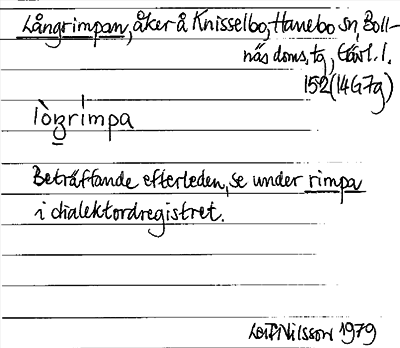 Långrimpan, åker å Knisselbo, Hanebo sn, Boll-
näs doms.tg, Gävl. l.
152 (14G7g)
lògrímpa
Beträffande efterleden, se under rimpa
i dialektordregistret.
Leif Nilsson 1979